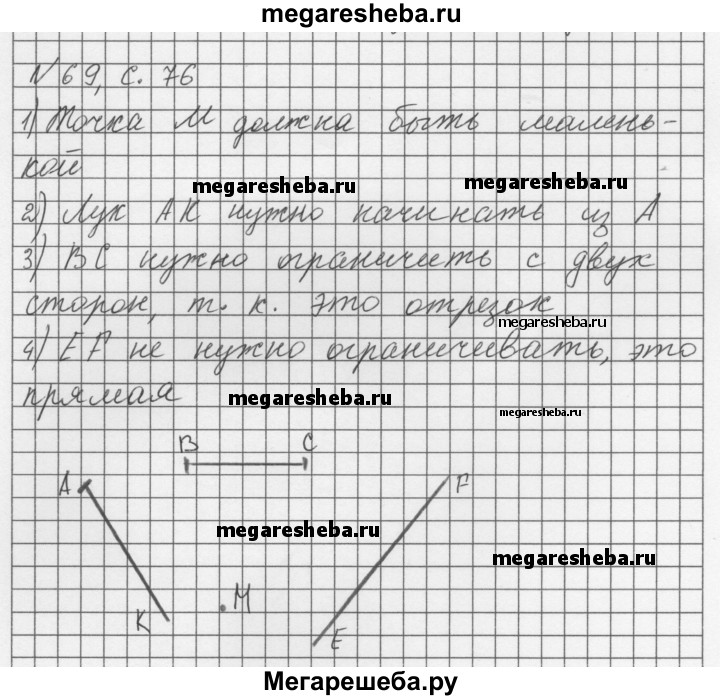 megaresheba.ru
№ 69, с. 76
1) Точка М должна быть малень-
кой
megaresheba.ru
megaresheba.ru
2) Лук АК нужно начинать из А
3) ВС нужно ограничить с двух
сторон, т. к. это отрезок
megaresheba.ru
4) EF не нужно ограничивать, это
прямая
megaresheba.ru
megaresheba.ru
В С
А F
megaresheba.ru
megaresheba.ru
К М
Е
Мегарешеба.ру